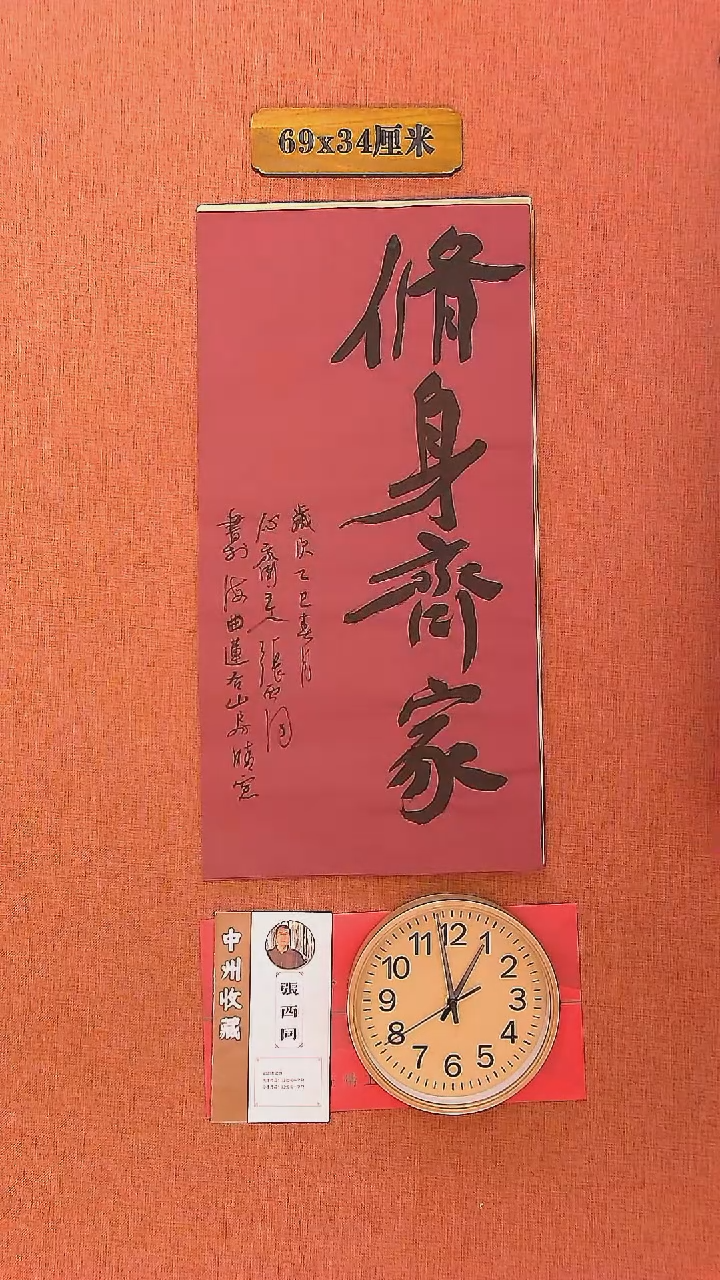 69x34厘米
修身齊家
歲次乙巳春月
張西同
書於海曲蓮台山房晴窓
中州收藏
張西同
12
1
2
3
4
5
6
7
8
9
10
11